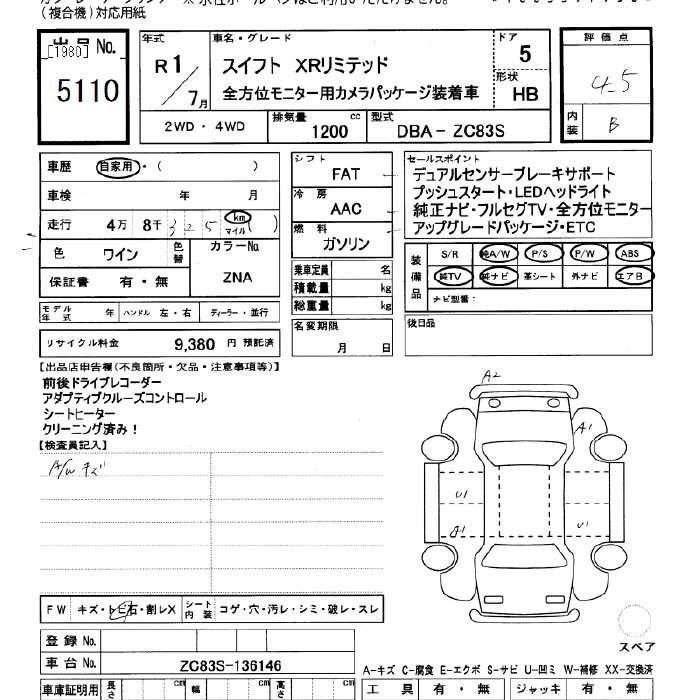 (複合機)対応用紙
出品 No.
[1980]
5110
年式
R1/7月
車名・グレード
スイフト XRリミテッド
全方位モニター用カメラパッケージ装着車
ドア
5
形状
HB
評価点
4.5
内装
B
2WD・4WD
排気量 1200 cc
型式 DBA-ZC83S
車歴 自家用・( )
車検 年 月
走行 4万 8千 325 km マイル ( )
色 ワイン 色替
カラーNo.
ZNA
保証書 有・無
モデル年式 年 ハンドル 左・右 ディーラー・並行
リサイクル料金 9,380 円 預託済
シフト
FAT
冷房
AAC
燃料
ガソリン
乗車定員 名
積載量 kg
総重量 kg
名変期限
月 日
セールスポイント
デュアルセンサーブレーキサポート
プッシュスタート・LEDヘッドライト
純正ナビ・フルセグTV・全方位モニター
アップグレードパッケージ・ETC
装備品
S/R 純A/W P/S P/W ABS
純TV 純ナビ 革シート 外ナビ エアB
ナビ型番:
後日品
【出品店申告欄(不良箇所・欠品・注意事項等)】
前後ドライブレコーダー
アダプティブクルーズコントロール
シートヒーター
クリーニング済み!
【検査員記入】
A/W キズ
A2
A1
U1
A1
U1
スペア
FW キズ・トビ石・割レX シート内装 コゲ・穴・汚レ・シミ・破レ・スレ
登録 No.
車台 No. ZC83S-136146
A-キズ C-腐食 E-エクボ S-サビ U-凹ミ W-補修 XX-交換済
車庫証明用 長さ cm 幅 cm 高さ cm
工具 有・無 ジャッキ 有・無